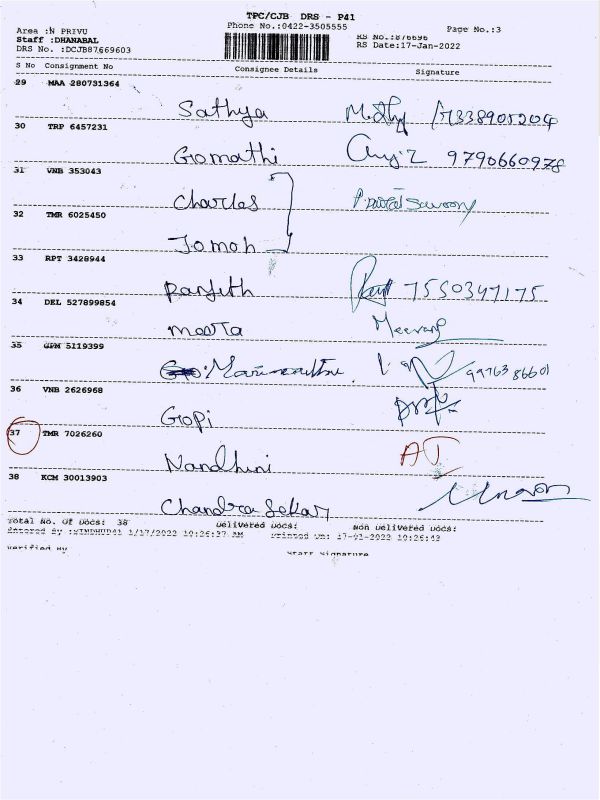 TPC/CJB DRS - P41
Phone No.:0422-3505555
Page No.:3
Area :N PRIVU
Staff :DHANABAL
DRS No. :DCJB87669603
RS No.:876696
RS Date:17-Jan-2022
S No Consignment No Consignee Details Signature
29 MAA 280731364
Sathya 7338905204
30 TRP 6457231
Gomathi 9790660978
31 VNB 353043
Charles
32 TMR 6025450
Jomon
33 RPT 3428944
Ranjith 7550347175
34 DEL 527899854
Meera
35 GPM 5119399
99763 86601
36 VNB 2626968
Gopi
37 TMR 7026260
Nandhini
38 KCM 30013903
Chandra Sekar
Total No. Of Docs: 38 Delivered Docs: Non Delivered Docs:
1/17/2022 10:26:37 AM Printed On: 17-01-2022 10:26:43
Verified By Staff Signature